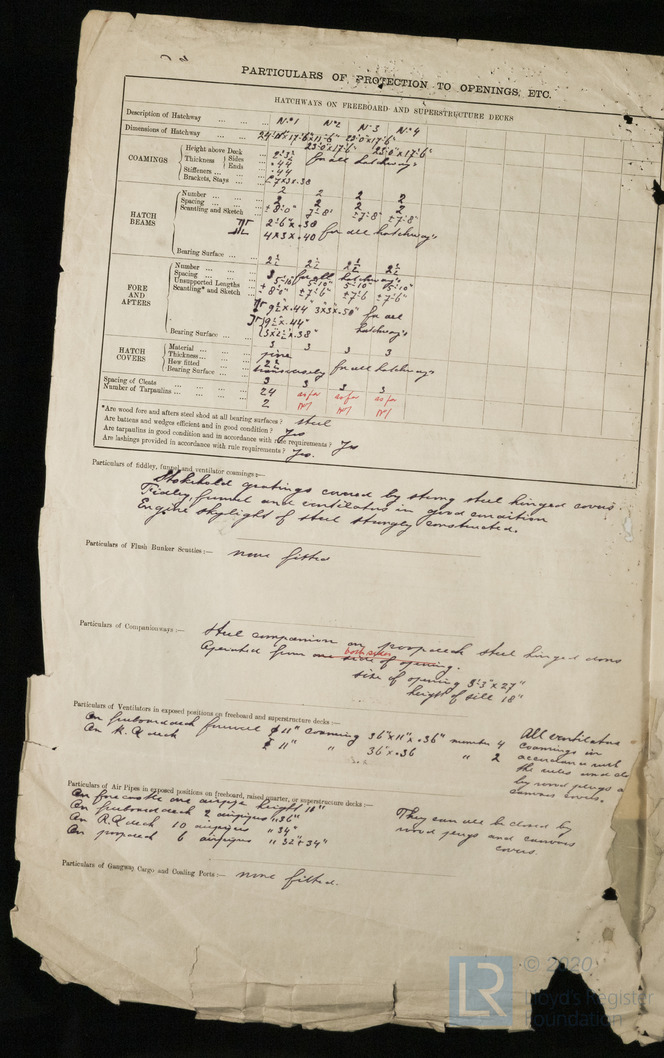 PARTICULARS OF PROTECTION TO OPENINGS, ETC.
HATCHWAYS ON FREEBOARD AND SUPERSTRUCTURE DECKS
Description of Hatchway ... ... ... No 1 No 2 No 3 No 4
Dimensions of Hatchway ... ... ... 23'-0"x17'-6"
23'-0"x17'-6" 23'-0"x17'-6"
COAMINGS
Height above Deck ... for all hatchways
Thickness Sides .44
Ends .44
Stiffeners ...
Brackets, Stays ... 7x3x.38
HATCH BEAMS
Number ... 2 2 2 2
Spacing ... 2 2 2
Scantling and Sketch ± 8'-0" 7'-8" ± 7'-8" ± 7'-8"
2'-6" x .38 for all hatchways
4 x 3 x .40
Bearing Surface ...
FORE AND AFTERS
Number ... 2½ 2½ 2½ 2½
Spacing ... 3 for all hatchways
Unsupported Lengths 5'-10" 5'-10" 5'-10" 5'-10"
Scantling* and Sketch ± 7'-6" ± 7'-6" ± 7'-6"
9½" x .44 3"x3"x.50" for all
9½" x .44" hatchways
Bearing Surface ... 3x2½"x.38"
HATCH COVERS
Material ... 3 3 3 3
Thickness ... pine
How fitted ... 2½
Bearing Surface ... transversely for all hatchways
Spacing of Cleats ... 3 3 3 3
Number of Tarpaulins ... 24 as for as for as for
2 No 1 No 1 No 1
*Are wood fore and afters steel shod at all bearing surfaces? steel
Are battens and wedges efficient and in good condition? Yes
Are tarpaulins in good condition and in accordance with rule requirements? Yes
Are lashings provided in accordance with rule requirements? Yes.
Particulars of fiddley, funnel and ventilator coamings:—
Stokehold gratings covered by strong steel hinged covers.
Fidley, funnel and ventilators in good condition
Engine skylight of steel strongly constructed.
Particulars of Flush Bunker Scuttles:— none fitted
Particulars of Companionways:— Steel companion on poopdeck steel hinged doors
both sides
Operated from one side of opening.
size of opening 27"
height of sill 18"
Particulars of Ventilators in exposed positions on freeboard and superstructure decks:—
On freeboard deck funnel 11" coaming 36"x11"x.36" number 4
On R.Q deck 11" " 36"x.36 " 2
All ventilators
coamings in
accordance with
the rules and
by wood plugs
canvas covers.
Particulars of Air Pipes in exposed positions on freeboard, raised quarter, or superstructure decks:—
On forecastle one airpipe height 18"
On freeboard deck 2 airpipes "36"
On R.Q deck 10 airpipes "34"
On poopdeck 6 airpipes "32"+34"
They can all be closed by
wood plugs and canvas
covers.
Particulars of Gangway Cargo and Coaling Ports:— none fitted.
LR © 2020
Lloyd's Register
Foundation